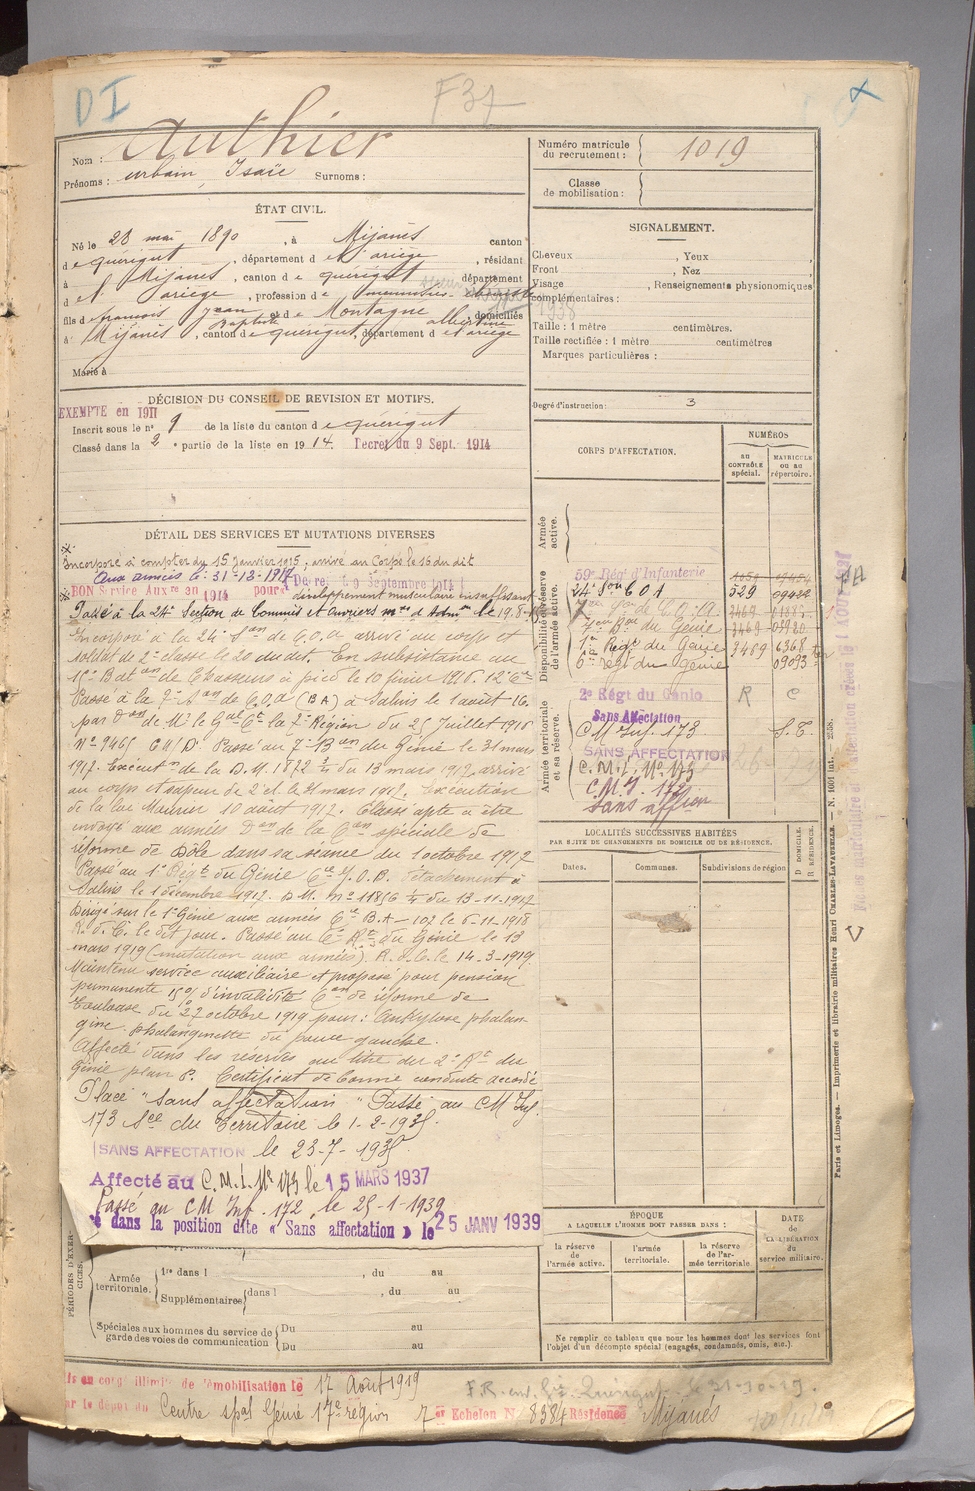 DI
F37
Nom : Authier
Prénoms : urbain, Isaïe Surnoms :
Numéro matricule du recrutement : 1019
Classe de mobilisation :
ÉTAT CIVIL.
Né le 28 mai 1890, à Mijanès canton
de quérigut, département de l'ariège, résidant
à Mijanès, canton de quérigut département
d el' ariège, profession de
fils de françois Jean Baptiste et de Montagne albertine domiciliés
à Mijanès, canton de quérigut, département de l'ariège
Marié à
SIGNALEMENT.
Cheveux , Yeux ,
Front , Nez ,
Visage , Renseignements physionomiques
complémentaires :
Taille : 1 mètre centimètres.
Taille rectifiée : 1 mètre centimètres
Marques particulières :
Degré d'instruction : 3
DÉCISION DU CONSEIL DE REVISION ET MOTIFS.
EXEMPTÉ en 1911
Inscrit sous le n° 9 de la liste du canton de quérigut
Classé dans la 2e partie de la liste en 1914. Décret du 9 Sept. 1914
DÉTAIL DES SERVICES ET MUTATIONS DIVERSES
Incorporé à compter du 15 Janvier 1915, arrivé au Corps le 16 du dit
Aux armées le : 31-12-1917 Décret 9 Septembre 1914
BON Service Auxre en 1914 pour développement musculaire insuffisant
Passé à la 24e Section de Commis et Ouvriers mres d'Admon le 19.8.15
Incorporé à la 24e Son de C.O.A arrivé au corps et
soldat de 2e classe le 20 du dit. En subsistance au
Bataon de Chasseurs à pied le 10 février 1916. 12e Cie
Passé à la 7e Son de C.O.A (BA) à Salins le 1 août 16.
par Don de Mr le Gal Ct la 7e Région du 25 Juillet 1916
No 9465 Passé au 7e Bon du Génie le 31 mars
1917. Exécuton de la D.M. 1872 3/4 du 13 mars 1917. arrivé
au corps et sapeur de 2e cl. le 31 mars 1917. Exécution
de la loi Mourier 10 août 1917. Classé apte à être
envoyé aux armées Don de la Con spéciale de
réforme de Dôle dans sa séance du 1 octobre 1917
Passé au 1e Régt du Génie Cie Détachement à
Salins le 1 décembre 1917. D.M. no 11856 du 13-11-1917
Dirigé sur le 1e Génie aux armées Cie B.A-107 le 6-11-1918
R. d. C. le dit jour. Passé au 6e Rt du Génie le 13
mars 1919 (mutation aux armées). R. d. C. le 14-3-1919.
Maintenu service auxiliaire et proposé pour pension
permanente 15% d'invalidité Con de réforme de
Toulouse du 27 octobre 1919 pour : Ankylose phalan
gine phalanginette du pouce gauche.
Affecté dans les réserves au titre du 2e Rt du
Génie plan P. Certificat de bonne conduite accordé
Placé "sans affectation" Passé au CM Inf.
173 Sce du Territoire le 1-2-1935.
SANS AFFECTATION le 23-7-1935
Affecté au C.M.I. No 173 le 15 MARS 1937
Passé au CM Inf. 172, le 25-1-1939
dans la position dite « Sans affectation » le 25 JANV 1939
CORPS D'AFFECTATION.
NUMÉROS
AU CONTRÔLE spécial.
MATRICULE ou au répertoire.
Armée active.
Disponibilité et réserve de l'armée active.
59e Régt d'Infanterie
24e Son C O A 529 09432
7eme Son de C.O.A. 3469
7eme Bon du Génie 3469
1er Régt du Génie 3489 6368 ter
6e regt du Génie 09093
Armée territoriale et sa réserve.
2e Régt du Génie R C
Sans Affectation
CM Inf. 173 S.T.
SANS AFFECTATION
C.M.I. No 173
C.M.I. 172
Sans affion
LOCALITÉS SUCCESSIVES HABITÉES
PAR SUITE DE CHANGEMENTS DE DOMICILE OU DE RÉSIDENCE.
Dates. Communes. Subdivisions de région
D DOMICILE. R RÉSIDENCE.
ÉPOQUE
A LAQUELLE L'HOMME DOIT PASSER DANS :
la réserve de l'armée active.
l'armée territoriale.
la réserve de l'armée territoriale.
DATE DE LA LIBÉRATION du service militaire.
Ne remplir ce tableau que pour les hommes dont les services font
l'objet d'un décompte spécial (engagés, condamnés, omis, etc.).
PÉRIODES D'EXERCICES.
Armée territoriale.
1re dans l , du au
Supplémentaires dans l , du au
Spéciales aux hommes du service de garde des voies de communication
Du au
Du au
congé illimité de démobilisation le 17 Août 1919
le dépôt du Centre spal Génie 17e région 7er Echelon N 8384 Résidence Mijanès
Paris et Limoges. — Imprimerie et librairie militaires Henri CHARLES-LAVAUZELLE.